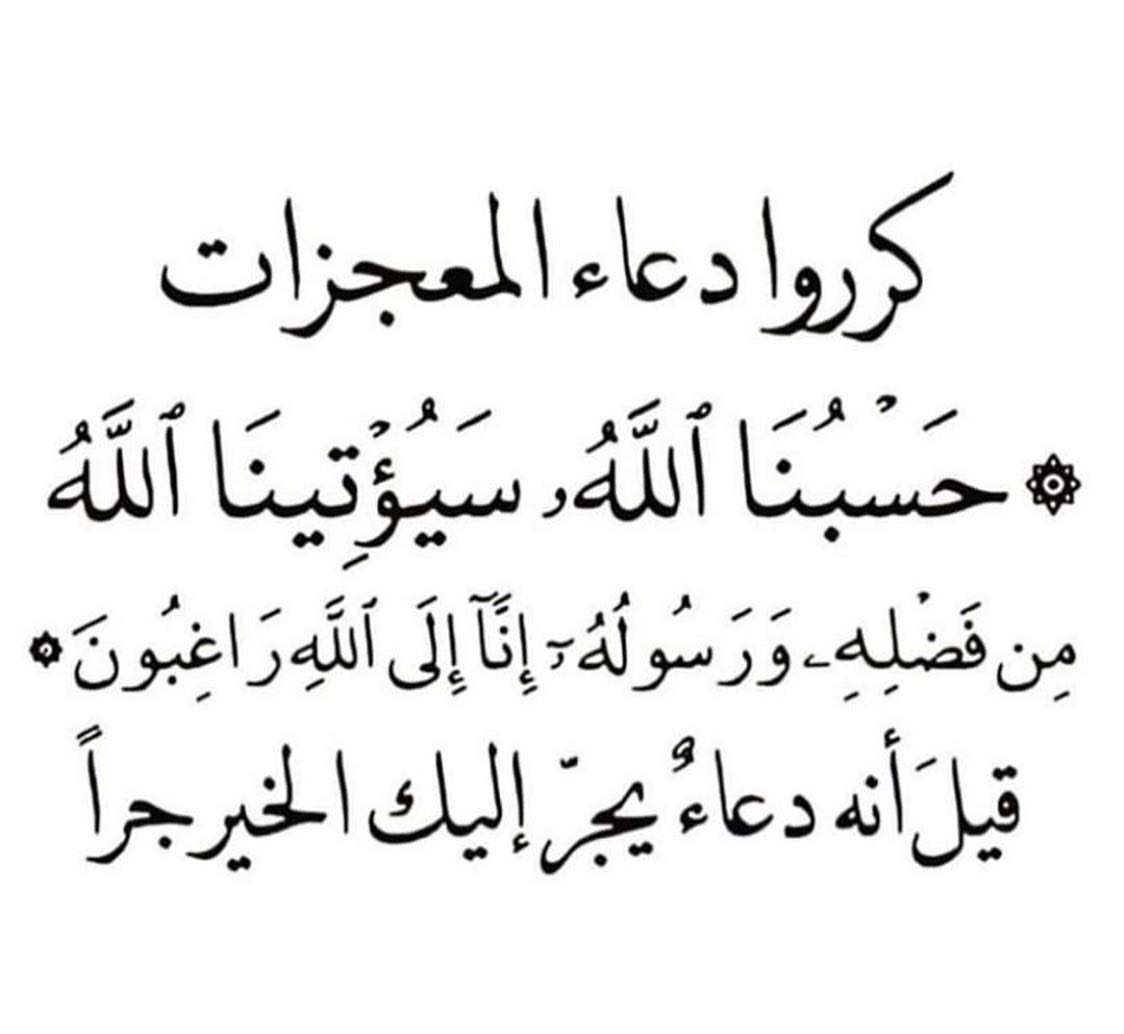 كرروا دعاء المعجزات
۞ حَسْبُنَا ٱللَّهُ ۥ سَيُؤْتِينَا ٱللَّهُ
مِن فَضْلِهِۦ وَرَسُولُهُۥٓ إِنَّآ إِلَى ٱللَّهِ رَاغِبُونَ ۞
قيلَ أنه دعاءٌ يجرّ إليك الخير جراً